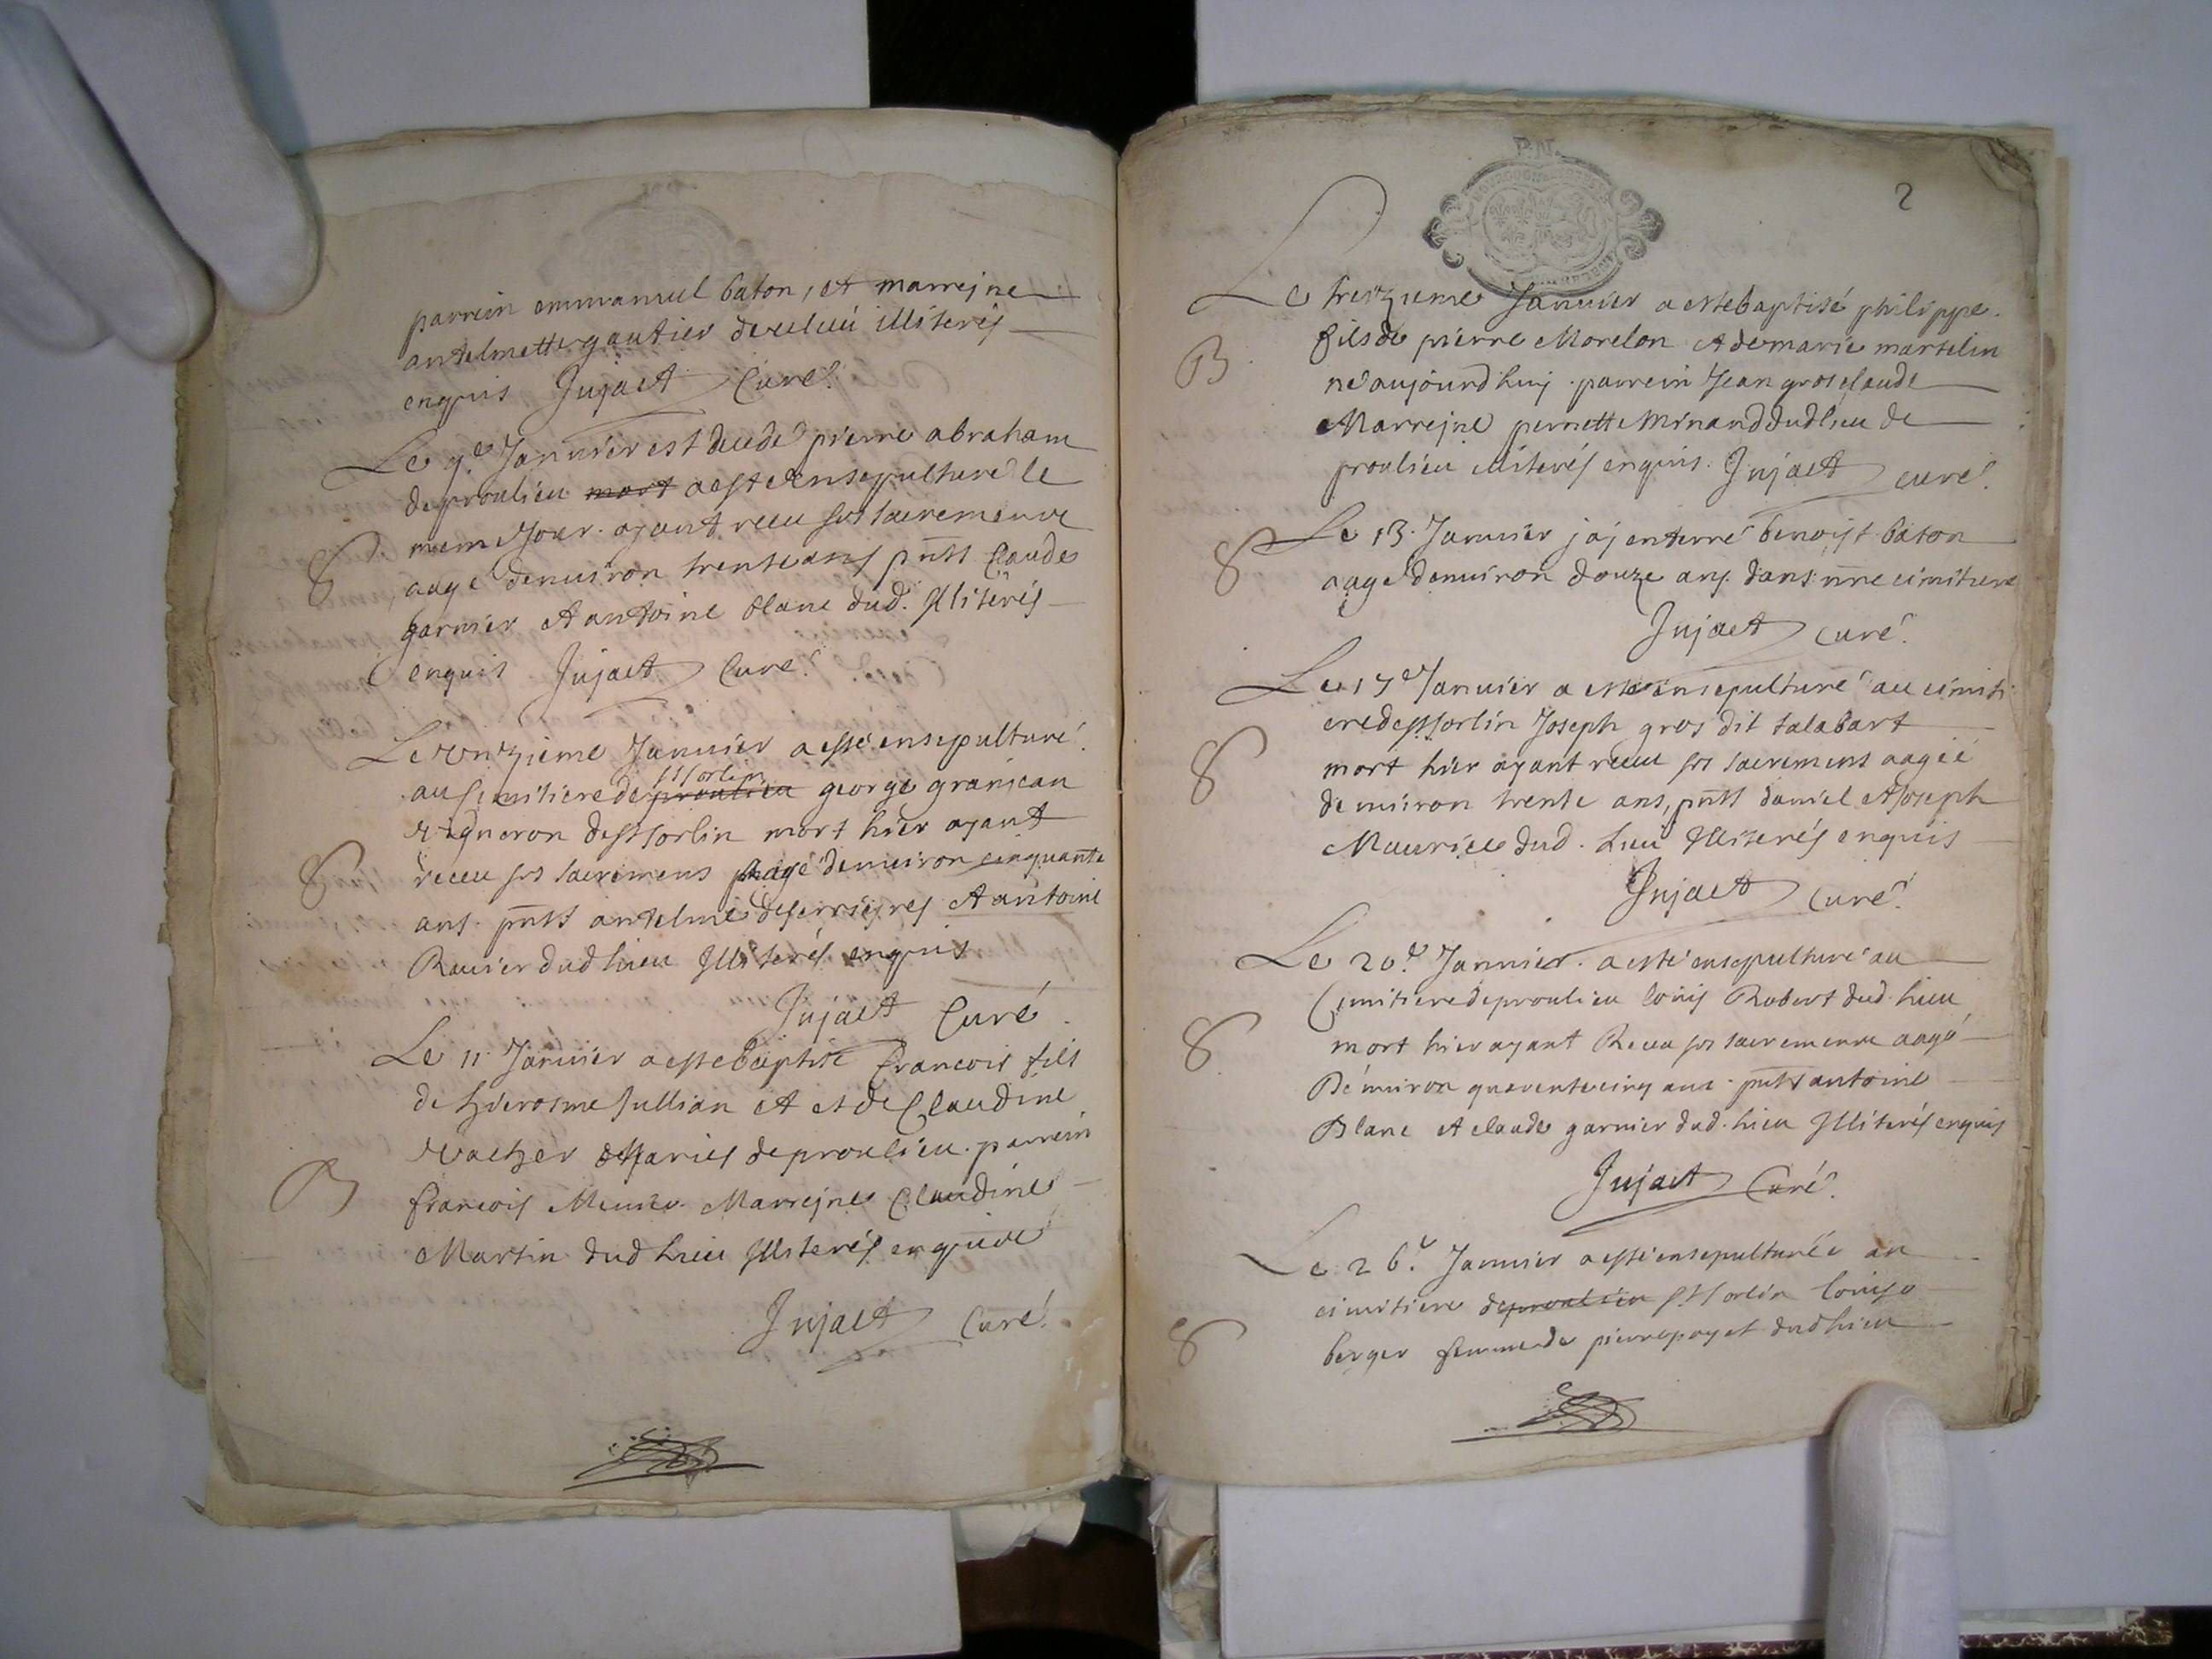 parrein emmanuel baton, et marrejne
antelmette gautier illiterés
enquis Jujact Curé
Le 9e Janvier est decedé pierre abraham
de proulieu mort a esté ensepulturé le
mem Jour. ajant receu ses sacremens
aagé denuiron trente ans pnts Claude
garnier et antoine blanc dud. Illiterés
enquis Jujact Curé
Le onzieme Januier a esté ensepulturé
st Sorlin
au Cimitiere de proulieu george granjean
vigneron de st Sorlin mort hier ajant
receu ses sacremens aagé denuiron cinquante
ans pnts antelme deserrieres et antoine
Rauier dud lieu Illiterés enquis
Jujact Curé
B
Le 11 Januier a esté baptisé francois fils
de hierosme Jullian et et de Claudine
mariés de proulieu. parrein
francois Marrejne Claudine
Martin dud lieu Illiterés enquis
Jujact Curé
P.N.
2
Le treizieme Januier a esté baptisé philippe
B
fils de pierre Morelon et de marie martelin
né aujourdhuj. parrein Jean grosclaude
Marrejne pernette Minand dud lieu de
proulieu illiterés enquis. Jujact curé
Le 13. Januier jaj enterré benoist baton
aagé denuiron douze ans. dans nre cimitiere
Jujact curé
Le 17e Januier a esté ensepulturé au cimiti
ere de st Sorlin Joseph gros dit talabart
mort hier ajant receu ses sacremens aagée
denuiron trente ans, pnts daniel et Joseph
Maurice dud. Lieu Illiterés enquis
Jujact Curé
Le 20e Januier. a esté ensepulturé au
Cimitiere de proulieu louis Robert dud. lieu
mort hier ajant Receu ses sacremens aagé
Dénuiron quarente cinq ans. pnts antoine
Blanc et claude garnier dud. lieu Illiterés enquis
Jujact Curé
Le 26e Januier a esté ensepulturée au
cimitiere de proulieu st Sorlin louise
berger femme de pierre payet dud lieu